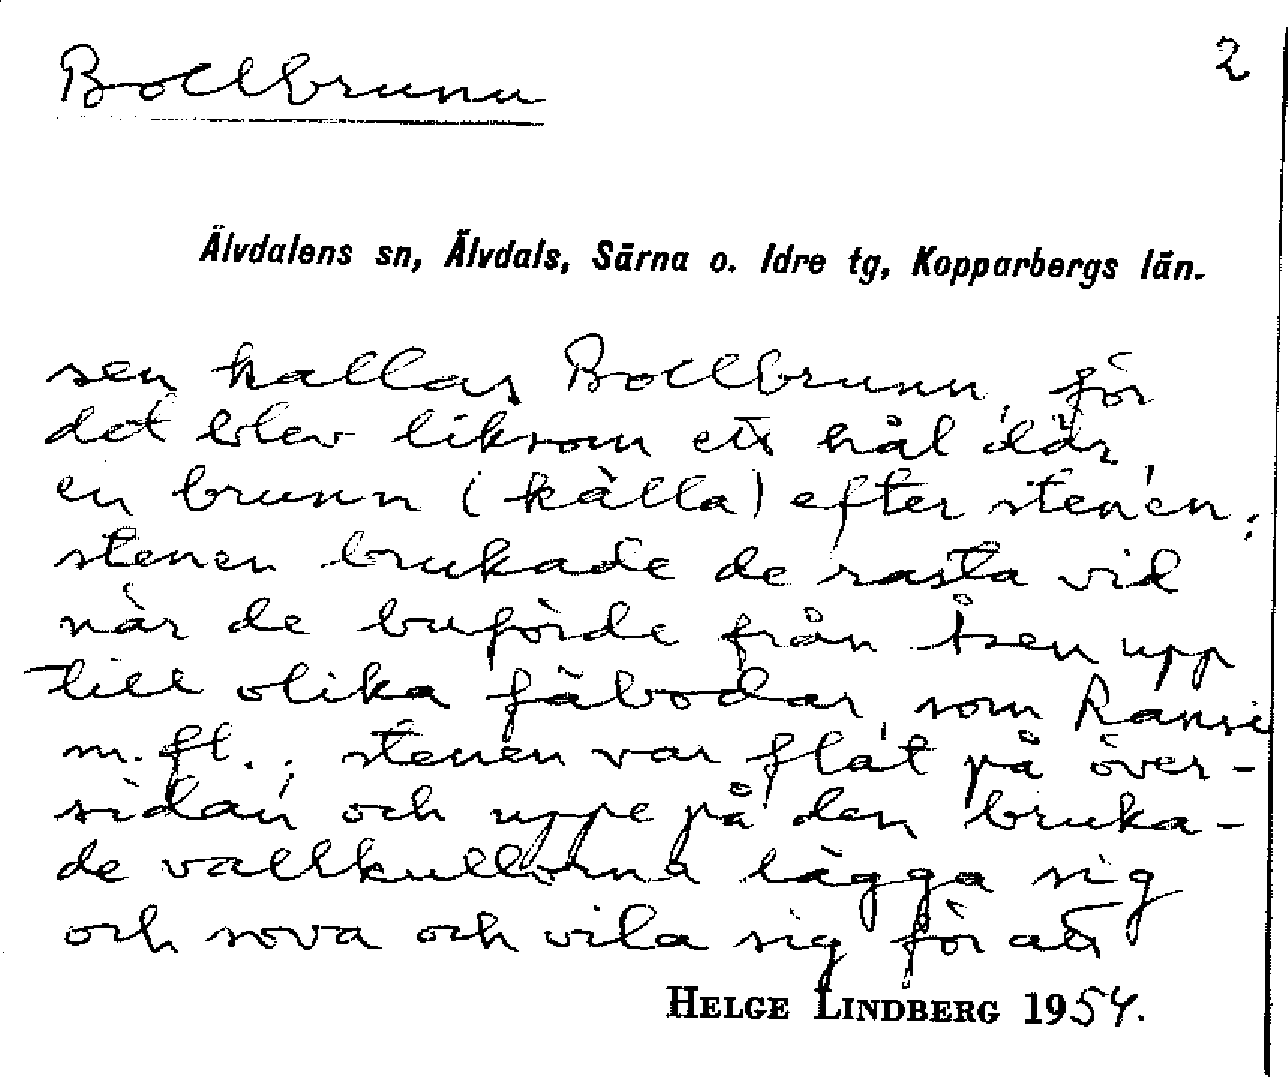 Bollbrunn
2
Älvdalens sn, Älvdals, Särna o. Idre tg, Kopparbergs län.
sen kallas Bollbrunn, för
det blev liksom ett hål där,
en brunn (källa) efter stenen;
stenen brukade de rasta vid
när de buförde från Åsen upp
till olika fäbodar, som Ransi
m.fl.; stenen var flat på över-
sidan och uppe på den bruka-
de vallkullorna lägga sig
och sova och vila sig för att
HELGE LINDBERG 1954.